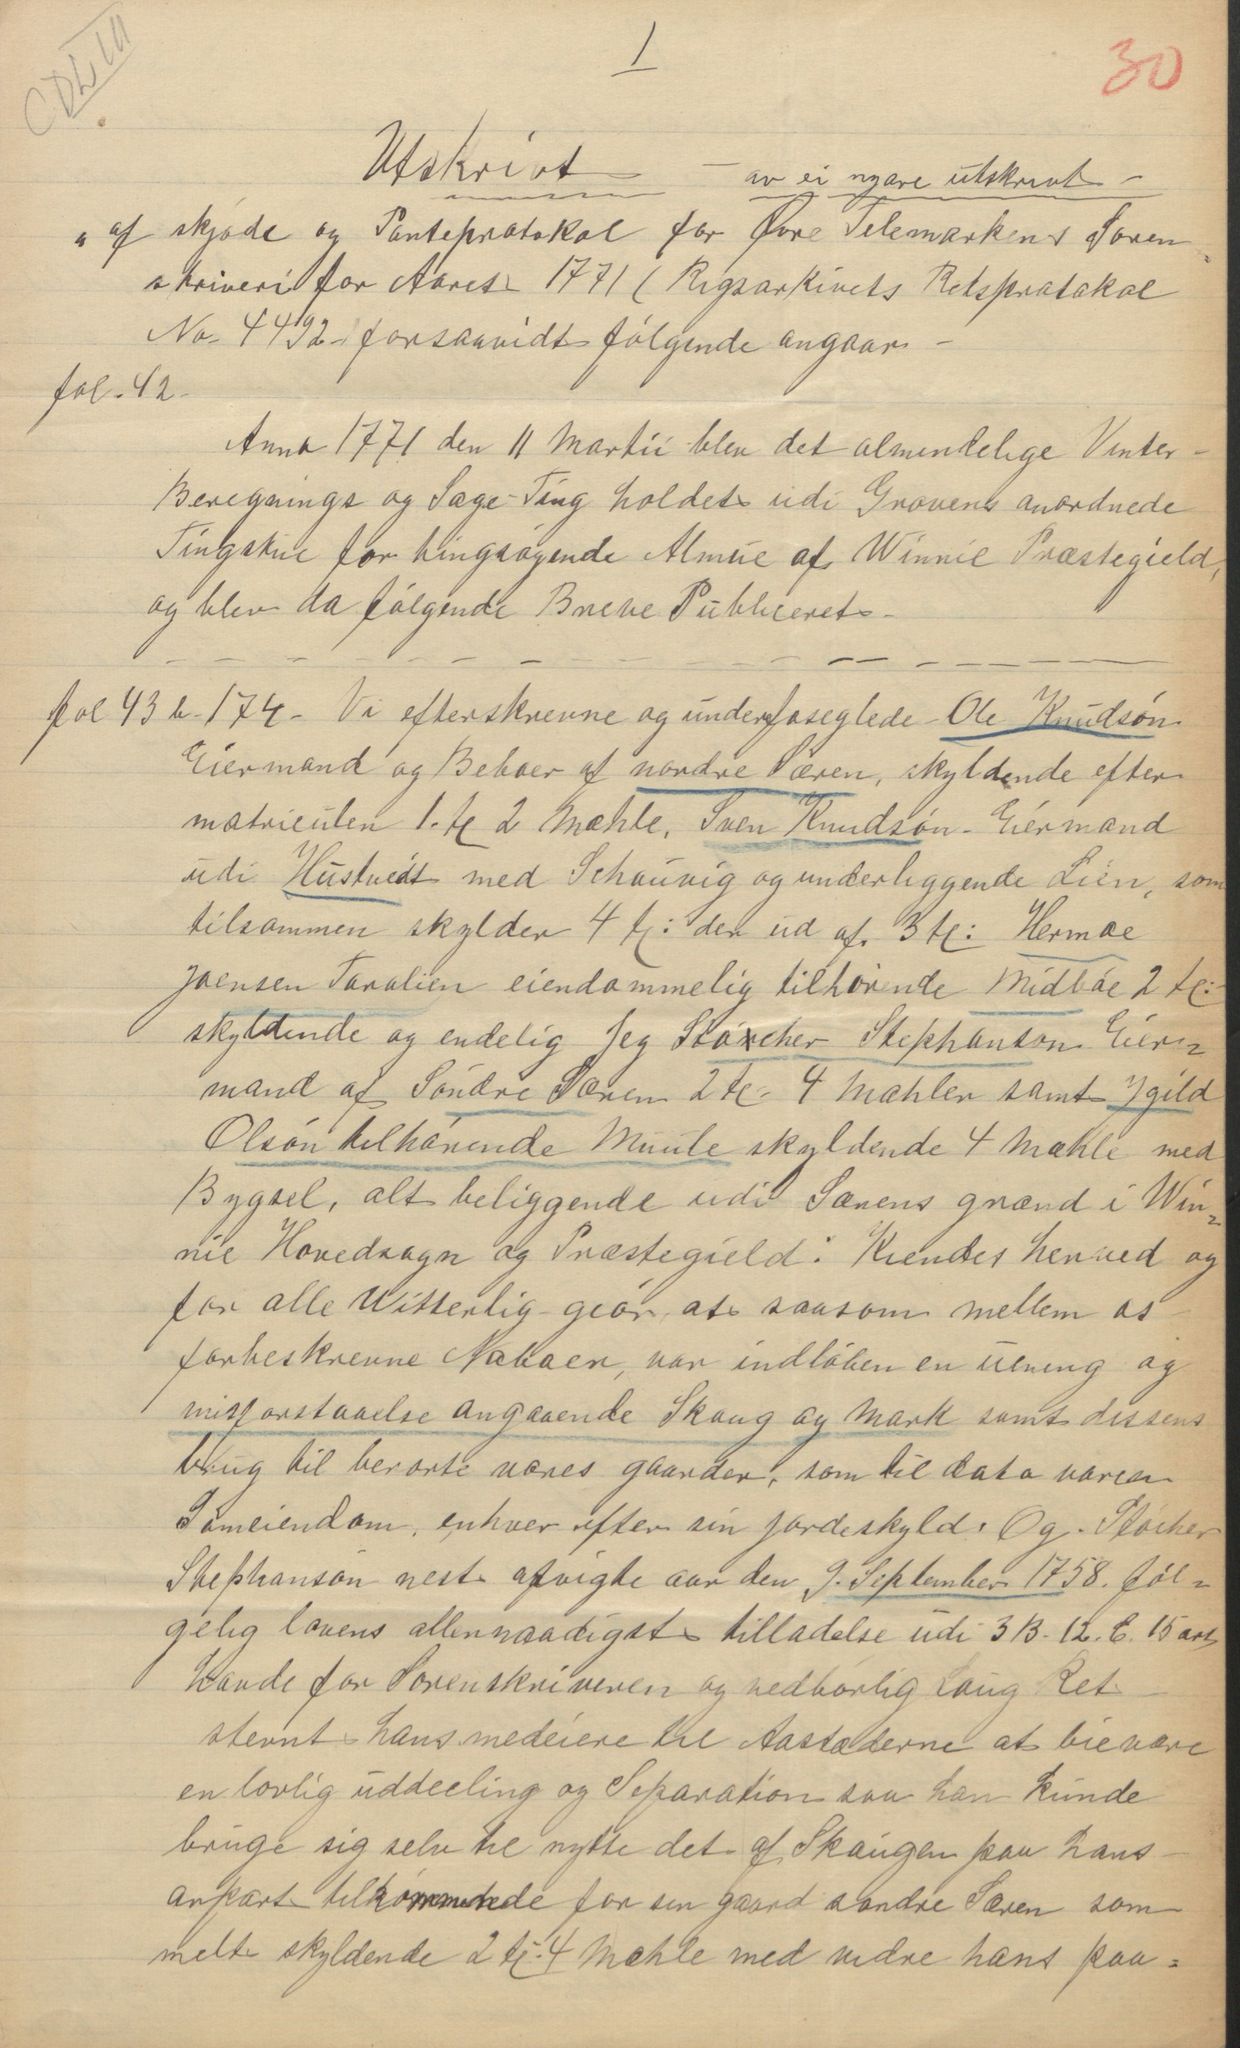 1
30
Utskrivt – av ei nyare utskrivt –
" af skjøde og Pantepratokol for Øvre Telemarkens Soren
skriveri for Aaret 1771 (Rigsarkivets Retspratakol
No. 4492 – forsaavidt følgende angaar –
fol. 42 –
Anno 1771 den 11 Martii blev det almindelige Vinter-
Beregnings og Sage-Ting holdet udi Grovens anordnede
Tingstue for tingsøgende Almue af Winnie Præstegield,
og blev da følgende Breve Publiceret –
fol 43 b – 174 – Vi efterskrevne og underfoseglede – Ole Knudsøn
Eiermand og Beboer af nordre Særen, skyldende efter
matriculen 1. tr 2 Mæhle, Sven Knudsøn – Eiermand
udi Hustvedt med Schauvig og underliggende Lien, som
tilsammen skylder 4 tr: der ud af 3 tr: Hermoe
Joensen Taralien eiendommelig tilhørende Midbøe 2 tr:
skyldende og endelig Jeg Støxcher Stephanson Eier=
mand af Søndre Særen 2 tr – 4 Mæhler samt Ygild
Olsøn tilhørende Muule skyldende 4 Mæhle med
Bygsel, alt beliggende udi Særens grænd i Win=
nie Hovedsogn og Præstegield: Kiendes herved og
for alle Witterlig giør, at saasom mellem os
forbeskrevne Naboer, var indløben en uening og
misforstaaelse angaaende Skoug og Mark samt dissens
brug til berørte vores gaarder, som til data varen
Sameiendom, enhver efter sin jordeskyld. Og. Støcher
Stephansøn nest afvigte aar den 9. September 1758. føl=
gelig lovens allernaadigst tilladelse udi 3 B. 12. C. 15 art
havde for Sorenskriveren og vedbørlig Laug Ret
stevnt hans medeiere til Aastæderne at bievære
en lovlig uddeeling og Separation saa han kunde
bruge sig selv til nytte det af Skougen paa hans
anpart tilkommende for sin gaard søndre Særen som
melt skyldende 2 tr. 4 Mæhle med vidre hans paa=